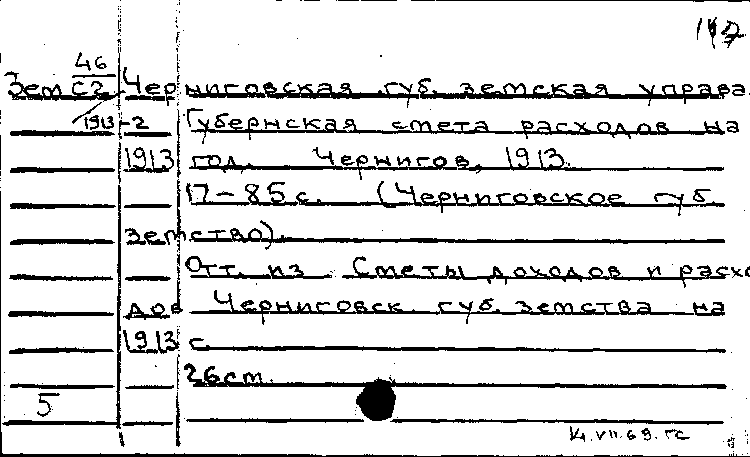 46
Зем С2 Черниговская губ. земская управа.
1913-2 Губернская смета расходов на
1913 год. Чернигов, 1913.
17-85 с. (Черниговское губ.
земство).
Отт. из Сметы доходов и расхо
дов Черниговск. губ. земства на
1913 г.
26 см.
5
14.VII.69. ГС